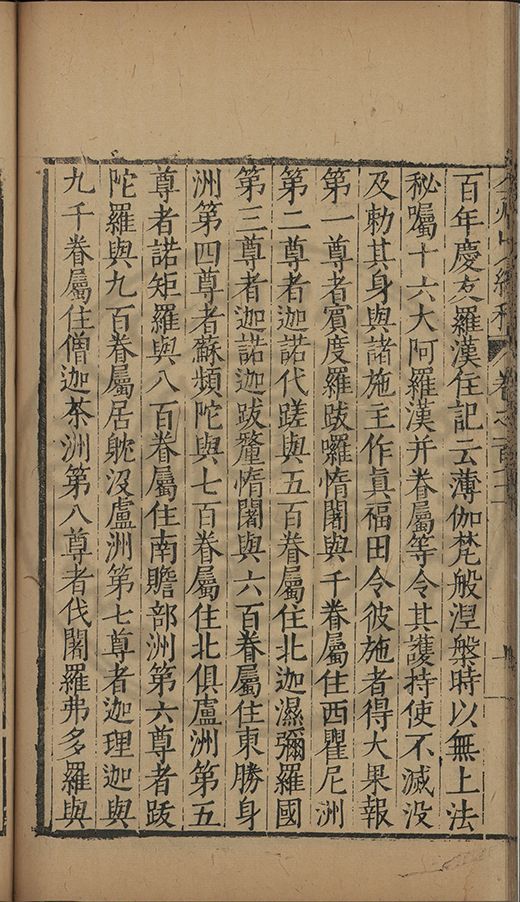 百年慶友羅漢住記云薄伽梵般涅槃時以無上法
秘囑十六大阿羅漢并眷屬等令其護持使不滅没
及勑其身與諸施主作眞福田令彼施者得大果報
第一尊者賓度羅跋囉惰闍與千眷屬住西瞿尼洲
第二尊者迦諾代蹉與五百眷屬住北迦濕彌羅國
第三尊者迦諾迦跋釐惰闍與六百眷屬住東勝身
洲第四尊者蘇頻陀與七百眷屬住北俱盧洲第五
尊者諾矩羅與八百眷屬住南贍部洲第六尊者跋
陀羅與九百眷屬居躭没盧洲第七尊者迦理迦與
九千眷屬住僧迦茶洲第八尊者伐闍羅弗多羅與